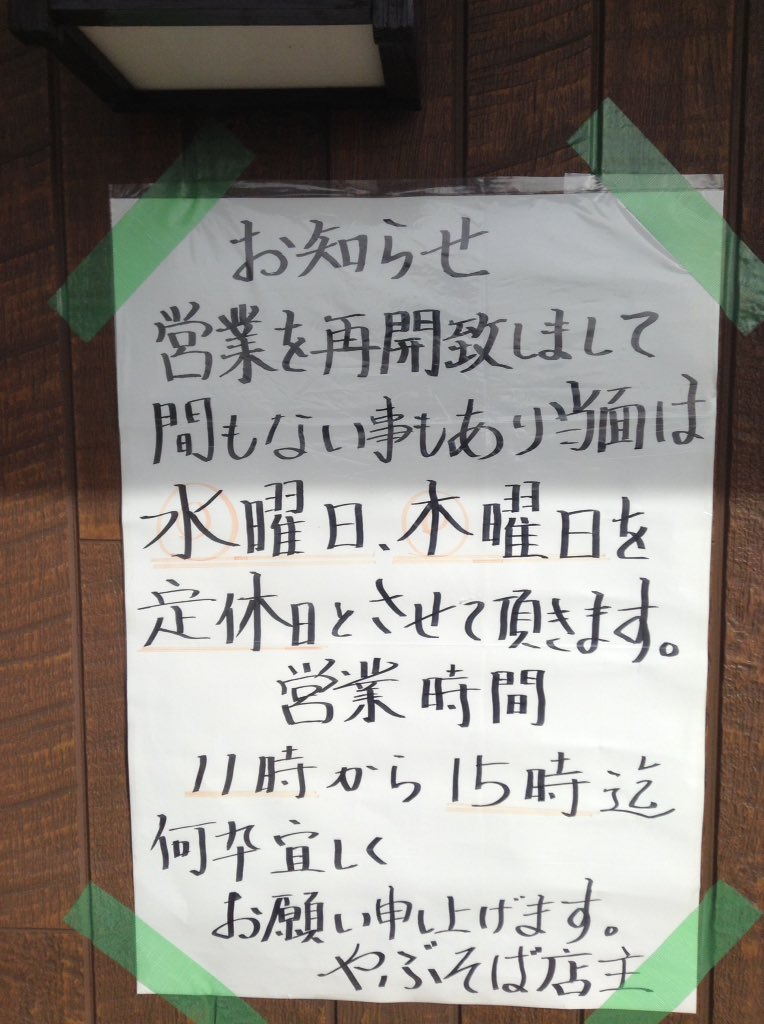 お知らせ
営業を再開致しまして
間もない事もあり当面は
水曜日、木曜日を
定休日とさせて頂きます。
営業時間
11時から15時迄
何卒宜しく
お願い申し上げます。
やぶそば店主